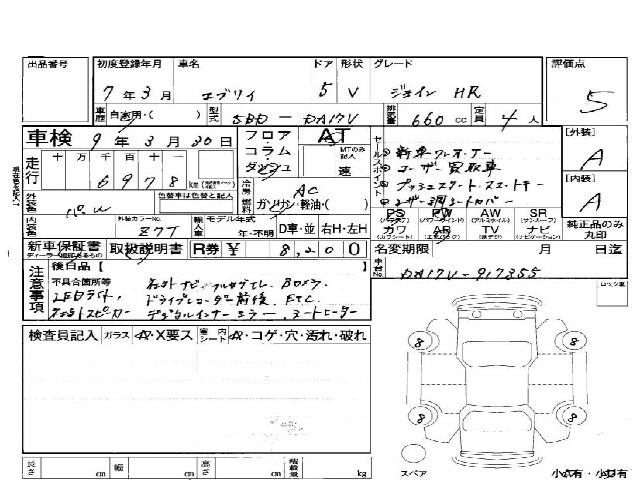 出品番号 初度登録年月 車名 ドア 形状 グレード 評価点
7年3月 エブリイ 5 V ジョイン HR 5
車歴 自家用・( ) 型式 5BD-DA17V 排気量 660cc 定員 4人
車検 9年3月30日 フロア・コラム・ダッシュ AT MTのみ記入 速
走行 十万千百十一 6978km
セールスポイント 新車ワンオーナー
ユーザー買取車
プッシュスタート・スマートキー
レザー調シートカバー
[外装] A
[内装] A
純正品のみ丸印
外装色 パール 色替車は色替と記入 冷房 AC 燃料 ガソリン・軽油・( )
PS PW AW SR
(パワステ) (パワーウィンドウ) (アルミホイル) (サンルーフ)
カワ AB TV ナビ
(カワシート) (エアバック) (液デジ) (ナビゲーション)
内装色 外装カラーNo. Z7T 輸入車 モデル年式 年・不明 D車・並 右H・左H
新車保証書 取扱説明書 R券 ¥8,200 名変期限 月 日迄
ディーラー捺印あるもの
車台No. DA17V-917355
注意事項 後日品【 】
不具合箇所等
LEDライト、ドライブレコーダー前後、ETC
デジタルインナーミラー、シートヒーター
ロック車
検査員記入 ガラス X要ス 室内 シート コゲ・穴・汚れ・破れ
8 8
8 8
長さ cm 幅 cm 高さ cm 積載量 kg スペア